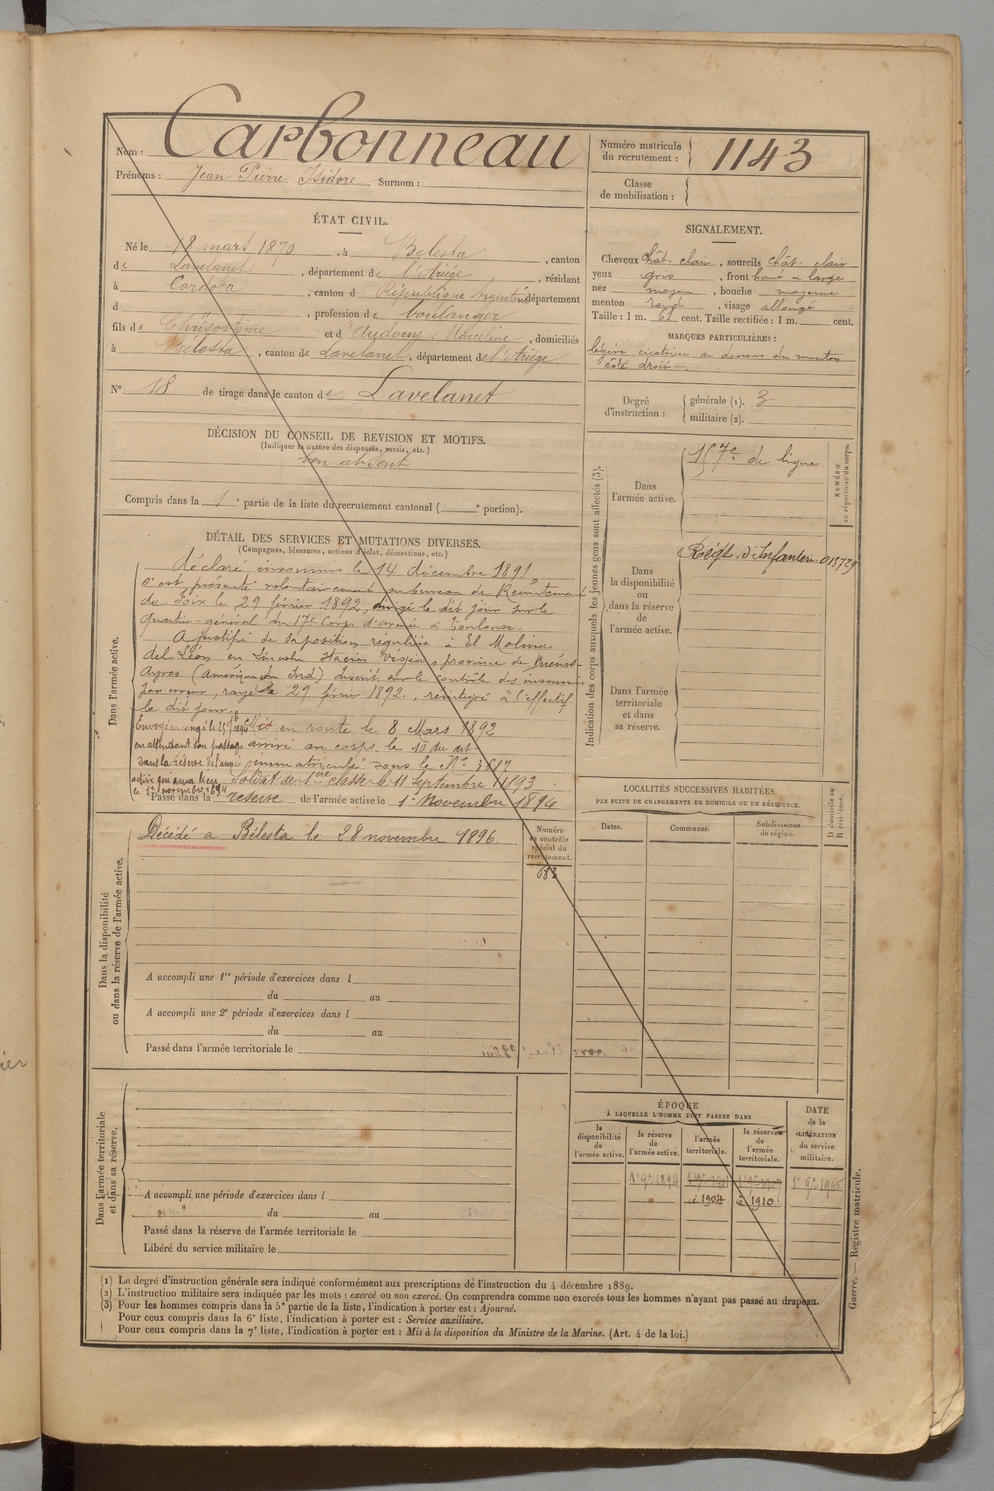 Nom : Carbonneau
Prénoms : Jean Pierre Isidore Surnom :
Numéro matricule du recrutement : 1143
Classe de mobilisation :
ÉTAT CIVIL.
Né le 18 mars 1870, à Bélesta, canton
de Lavelanet, département de l'Ariège, résidant
à Cordoba, canton d République Argentine département
d , profession de boulanger
fils de Chrisostôme et d' Audouy Marceline, domiciliés
à Bélesta, canton de Lavelanet, département de l'Ariège
N° 18 de tirage dans le canton de Lavelanet
DÉCISION DU CONSEIL DE REVISION ET MOTIFS.
(Indiquer la nature des dispenses, sursis, etc.)
bon absent
Compris dans la 1e partie de la liste du recrutement cantonal ( e portion).
SIGNALEMENT.
Cheveux chât. clair, sourcils chât. clair
yeux gris, front haut et large
nez moyen, bouche moyenne
menton rond, visage allongé
Taille : 1 m. 61 cent. Taille rectifiée : 1 m. cent.
MARQUES PARTICULIÈRES :
légère cicatrice au dessous du menton
côté droit.
Degré d'instruction : générale (1). 3
militaire (2).
DÉTAIL DES SERVICES ET MUTATIONS DIVERSES.
(Campagnes, blessures, actions d'éclat, décorations, etc.)
Dans l'armée active.
déclaré insoumis le 14 décembre 1891
s'est présenté volontairement au bureau de Recrutement
de Foix le 29 février 1892, dirigé le dit jour sur le
quartier-général du 17e Corps d'armée à Toulouse.
A justifié de sa position régulière à El Molino
del Léon en Lincoln province de Buénos-
Ayres (Amérique du Sud) inscrit sur le contrôle des insoumis
par erreur, rayé le 29 février 1892, réintégré à l'effectif
le dit jour.
Mis en route le 8 Mars 1892
arrivé au corps le 10 du dit
immatriculé sous le N° 3887
Soldat de 1ère classe le 11 Septembre 1893
Envoyé en congé le 25 7bre 1894
en attendant son passage
dans la réserve de l'armée
active qui aura lieu
le 1er novembre 1894
Passé dans la réserve de l'armée active le 1er Novembre 1894
Indication des corps auxquels les jeunes gens sont affectés (3).
Dans l'armée active.
157e de ligne
NUMÉRO au répertoire du corps.
Dans la disponibilité ou dans la réserve de l'armée active.
Régt. d'Infanterie 015729
Dans l'armée territoriale et dans sa réserve.
Dans la disponibilité ou dans la réserve de l'armée active.
Décédé à Bélesta le 28 novembre 1896
Numéro au contrôle spécial du recrutement.
683
A accompli une 1re période d'exercices dans l
du au
A accompli une 2e période d'exercices dans l
du au
Passé dans l'armée territoriale le
LOCALITÉS SUCCESSIVES HABITÉES
PAR SUITE DE CHANGEMENTS DE DOMICILE OU DE RÉSIDENCE.
Dates. Communes. Subdivisions de région. D domicile ou R résidence.
Dans l'armée territoriale et dans sa réserve.
A accompli une période d'exercices dans l
du au
Passé dans la réserve de l'armée territoriale le
Libéré du service militaire le
ÉPOQUE
À LAQUELLE L'HOMME DOIT PASSER DANS
la disponibilité de l'armée active.
la réserve de l'armée active.
l'armée territoriale.
la réserve de l'armée territoriale.
DATE de la LIBÉRATION du service militaire.
1er 9bre 1894
1904
1910
Guerre. — Registre matricule.
(1) Le degré d'instruction générale sera indiqué conformément aux prescriptions de l'instruction du 4 décembre 1889.
(2) L'instruction militaire sera indiquée par les mots : exercé ou non exercé. On comprendra comme non exercés tous les hommes n'ayant pas passé au drapeau.
(3) Pour les hommes compris dans la 5e partie de la liste, l'indication à porter est : Ajourné.
Pour ceux compris dans la 6e liste, l'indication à porter est : Service auxiliaire.
Pour ceux compris dans la 7e liste, l'indication à porter est : Mis à la disposition du Ministre de la Marine. (Art. 4 de la loi.)